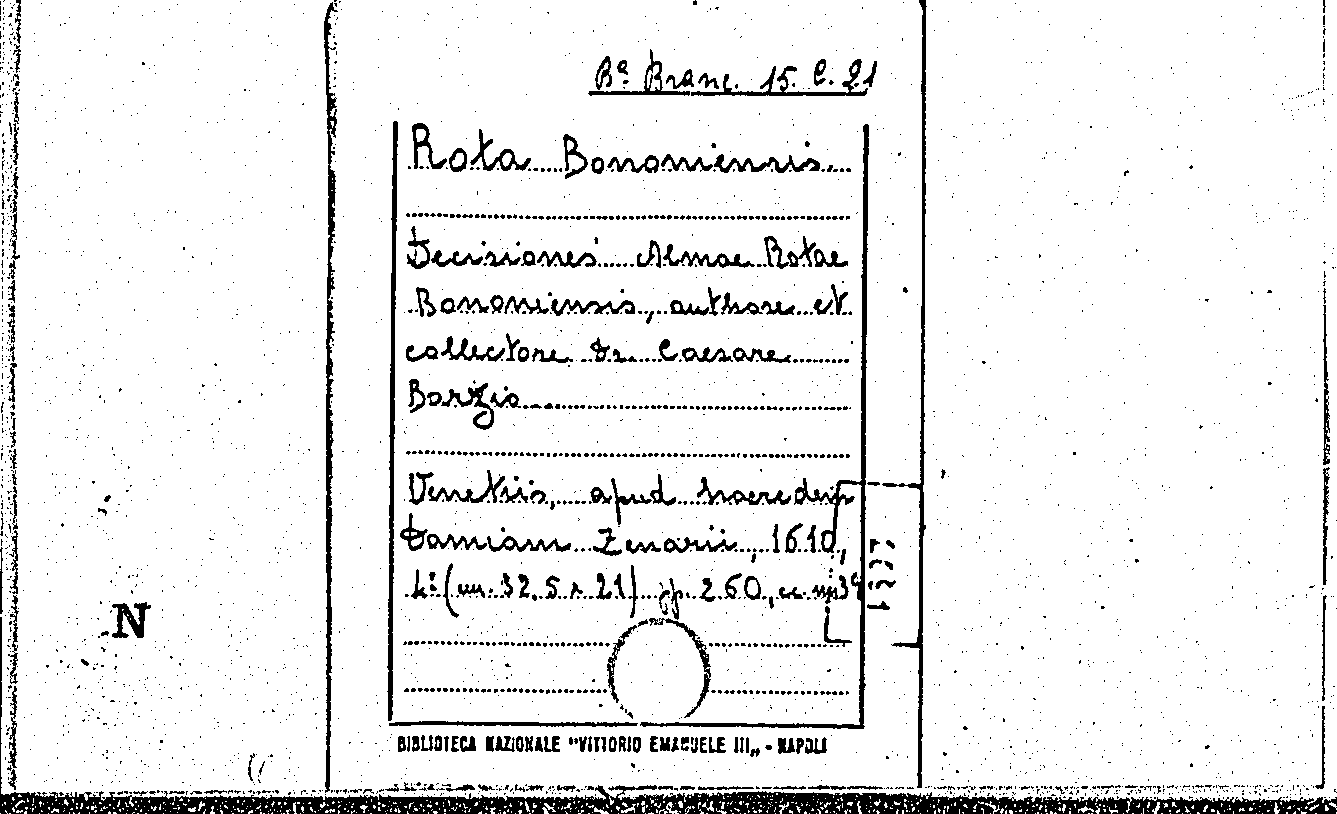 Bª Branc. 15. C. 21
Rota Bononiensis
Decisiones Almae Rotae
Bononiensis, authore et
collectore Dr. Caesare
Barzio
Venetiis, apud haeredem
Damiani Zenarii, 1610,
(cm. 32,5 x 21) pp. 260, cc.
N
BIBLIOTECA NAZIONALE "VITTORIO EMANUELE III„ - NAPOLI